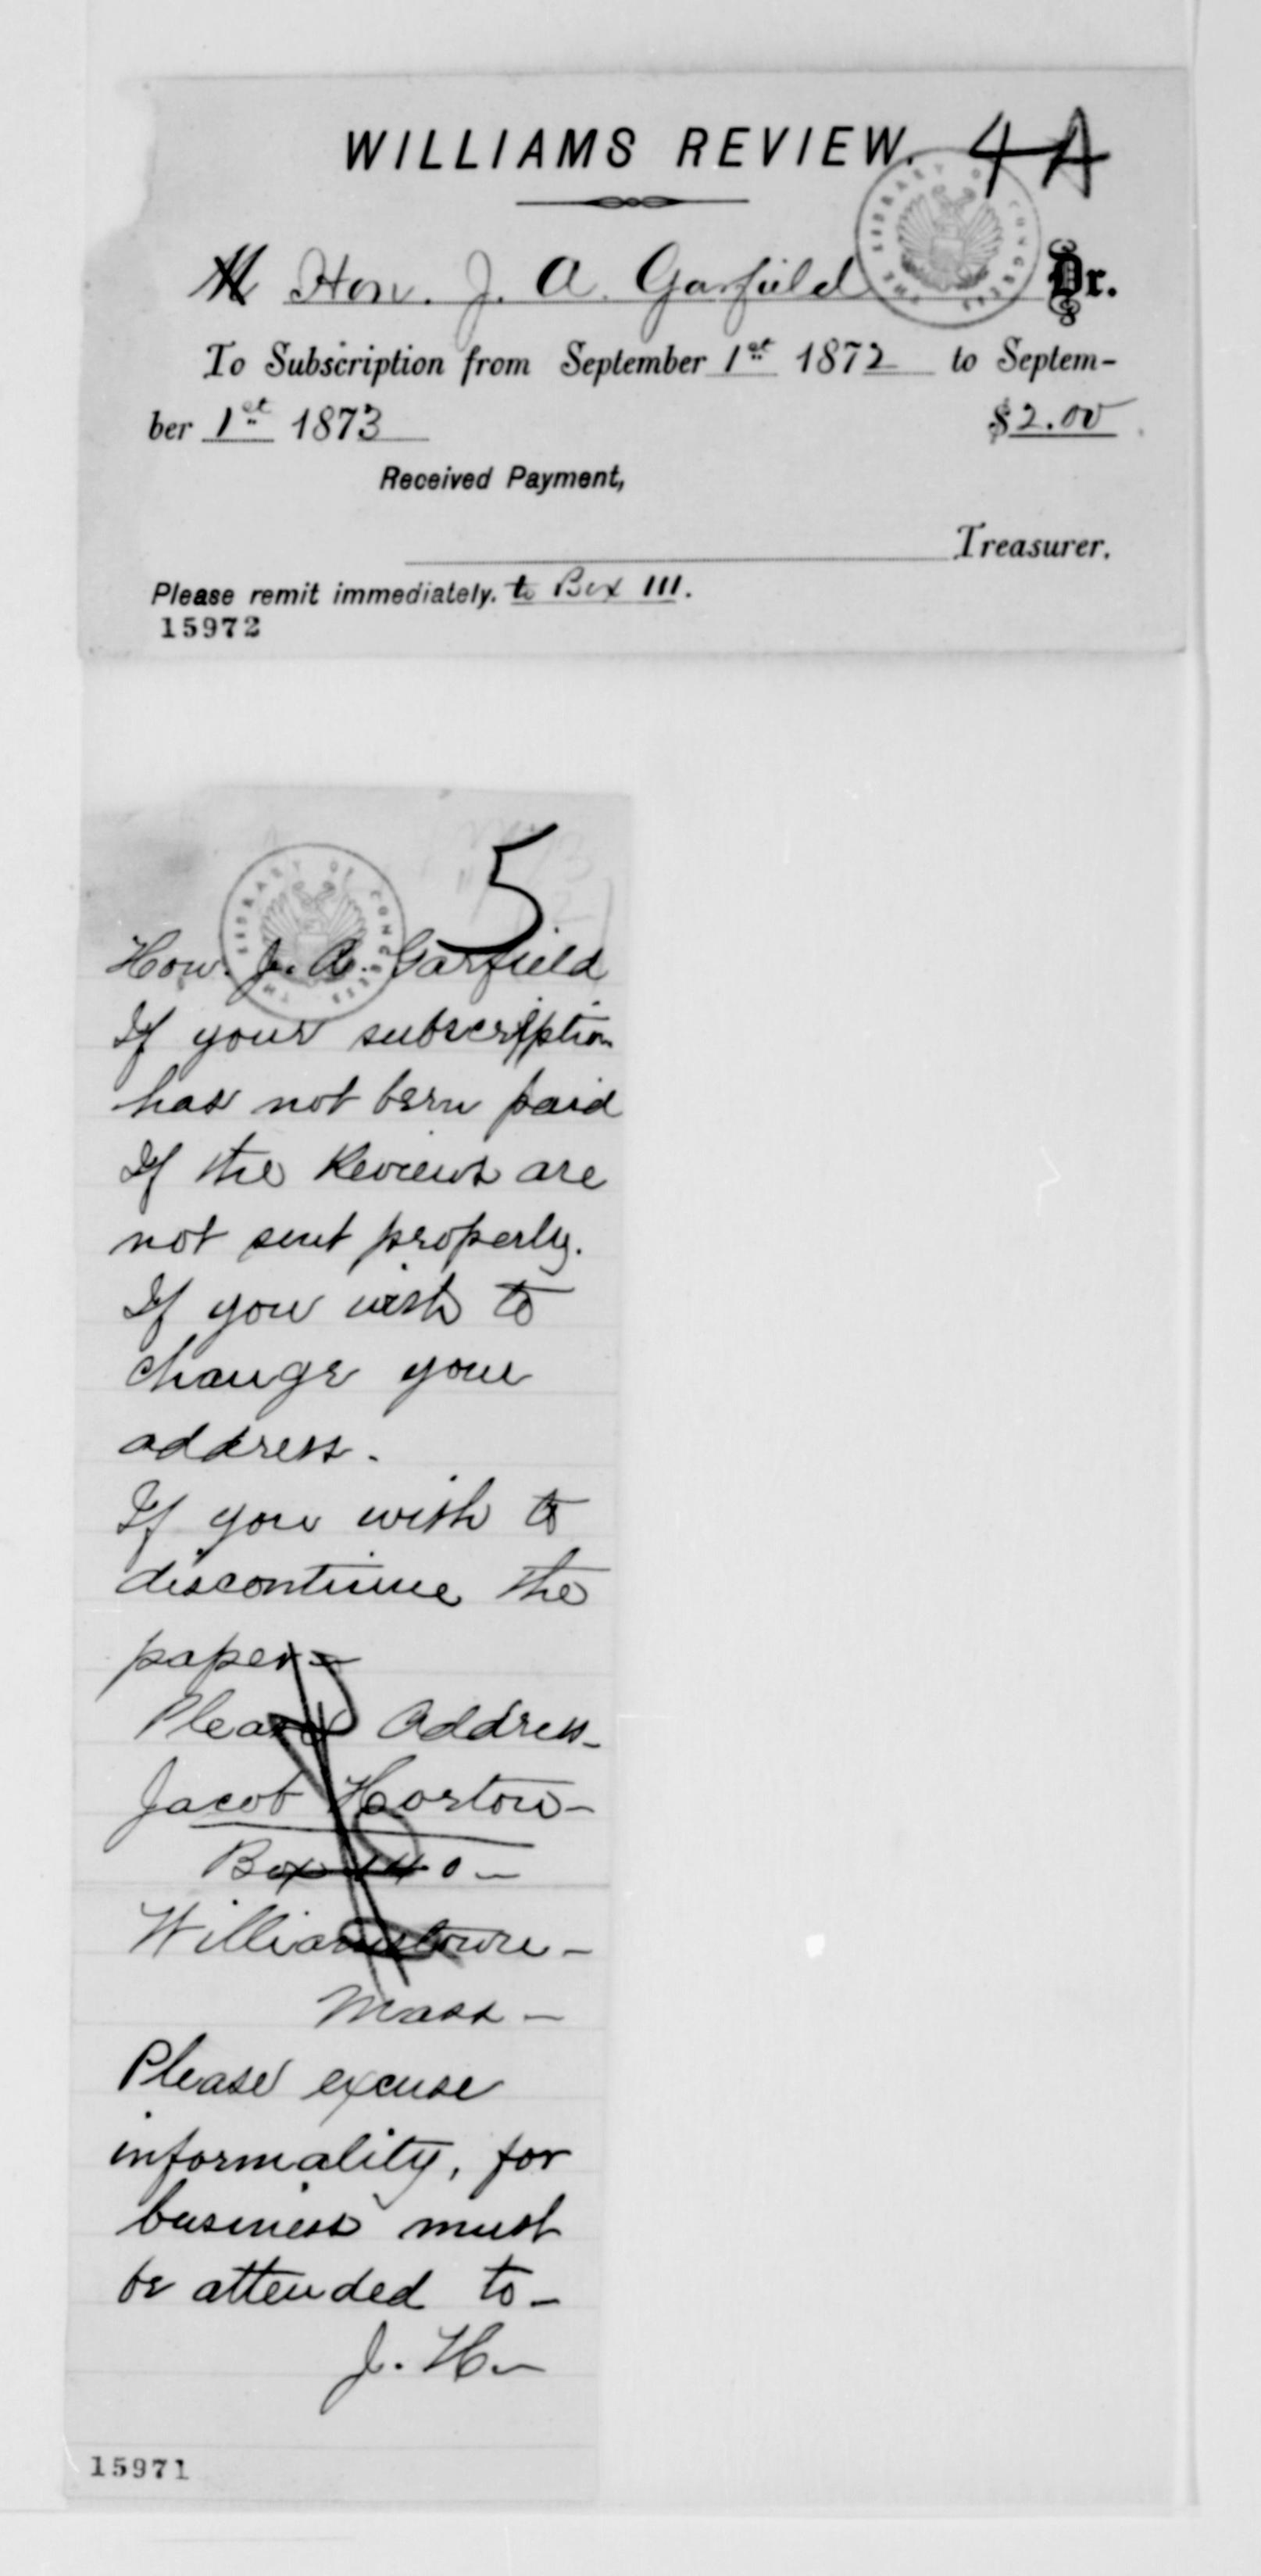 WILLIAMS REVIEW. 4A
THE LIBRARY OF CONGRESS
M Hon. J. A. Garfield Dr.
To Subscription from September 1st 1872 to Septem-
ber 1st 1873 $2.00
Received Payment,
Treasurer.
Please remit immediately. to Box 111.
15972
5
THE LIBRARY OF CONGRESS
Hon. J. A. Garfield
If your subscription
has not been paid
If the Reviews are
not sent properly.
If you wish to
change your
address.
If you wish to
discontinue the
paper—
Please Address—
Jacob Horton—
Box 140—
Williamstown—
Mass—
Please excuse
informality, for
business must
be attended to—
J. H—
15971